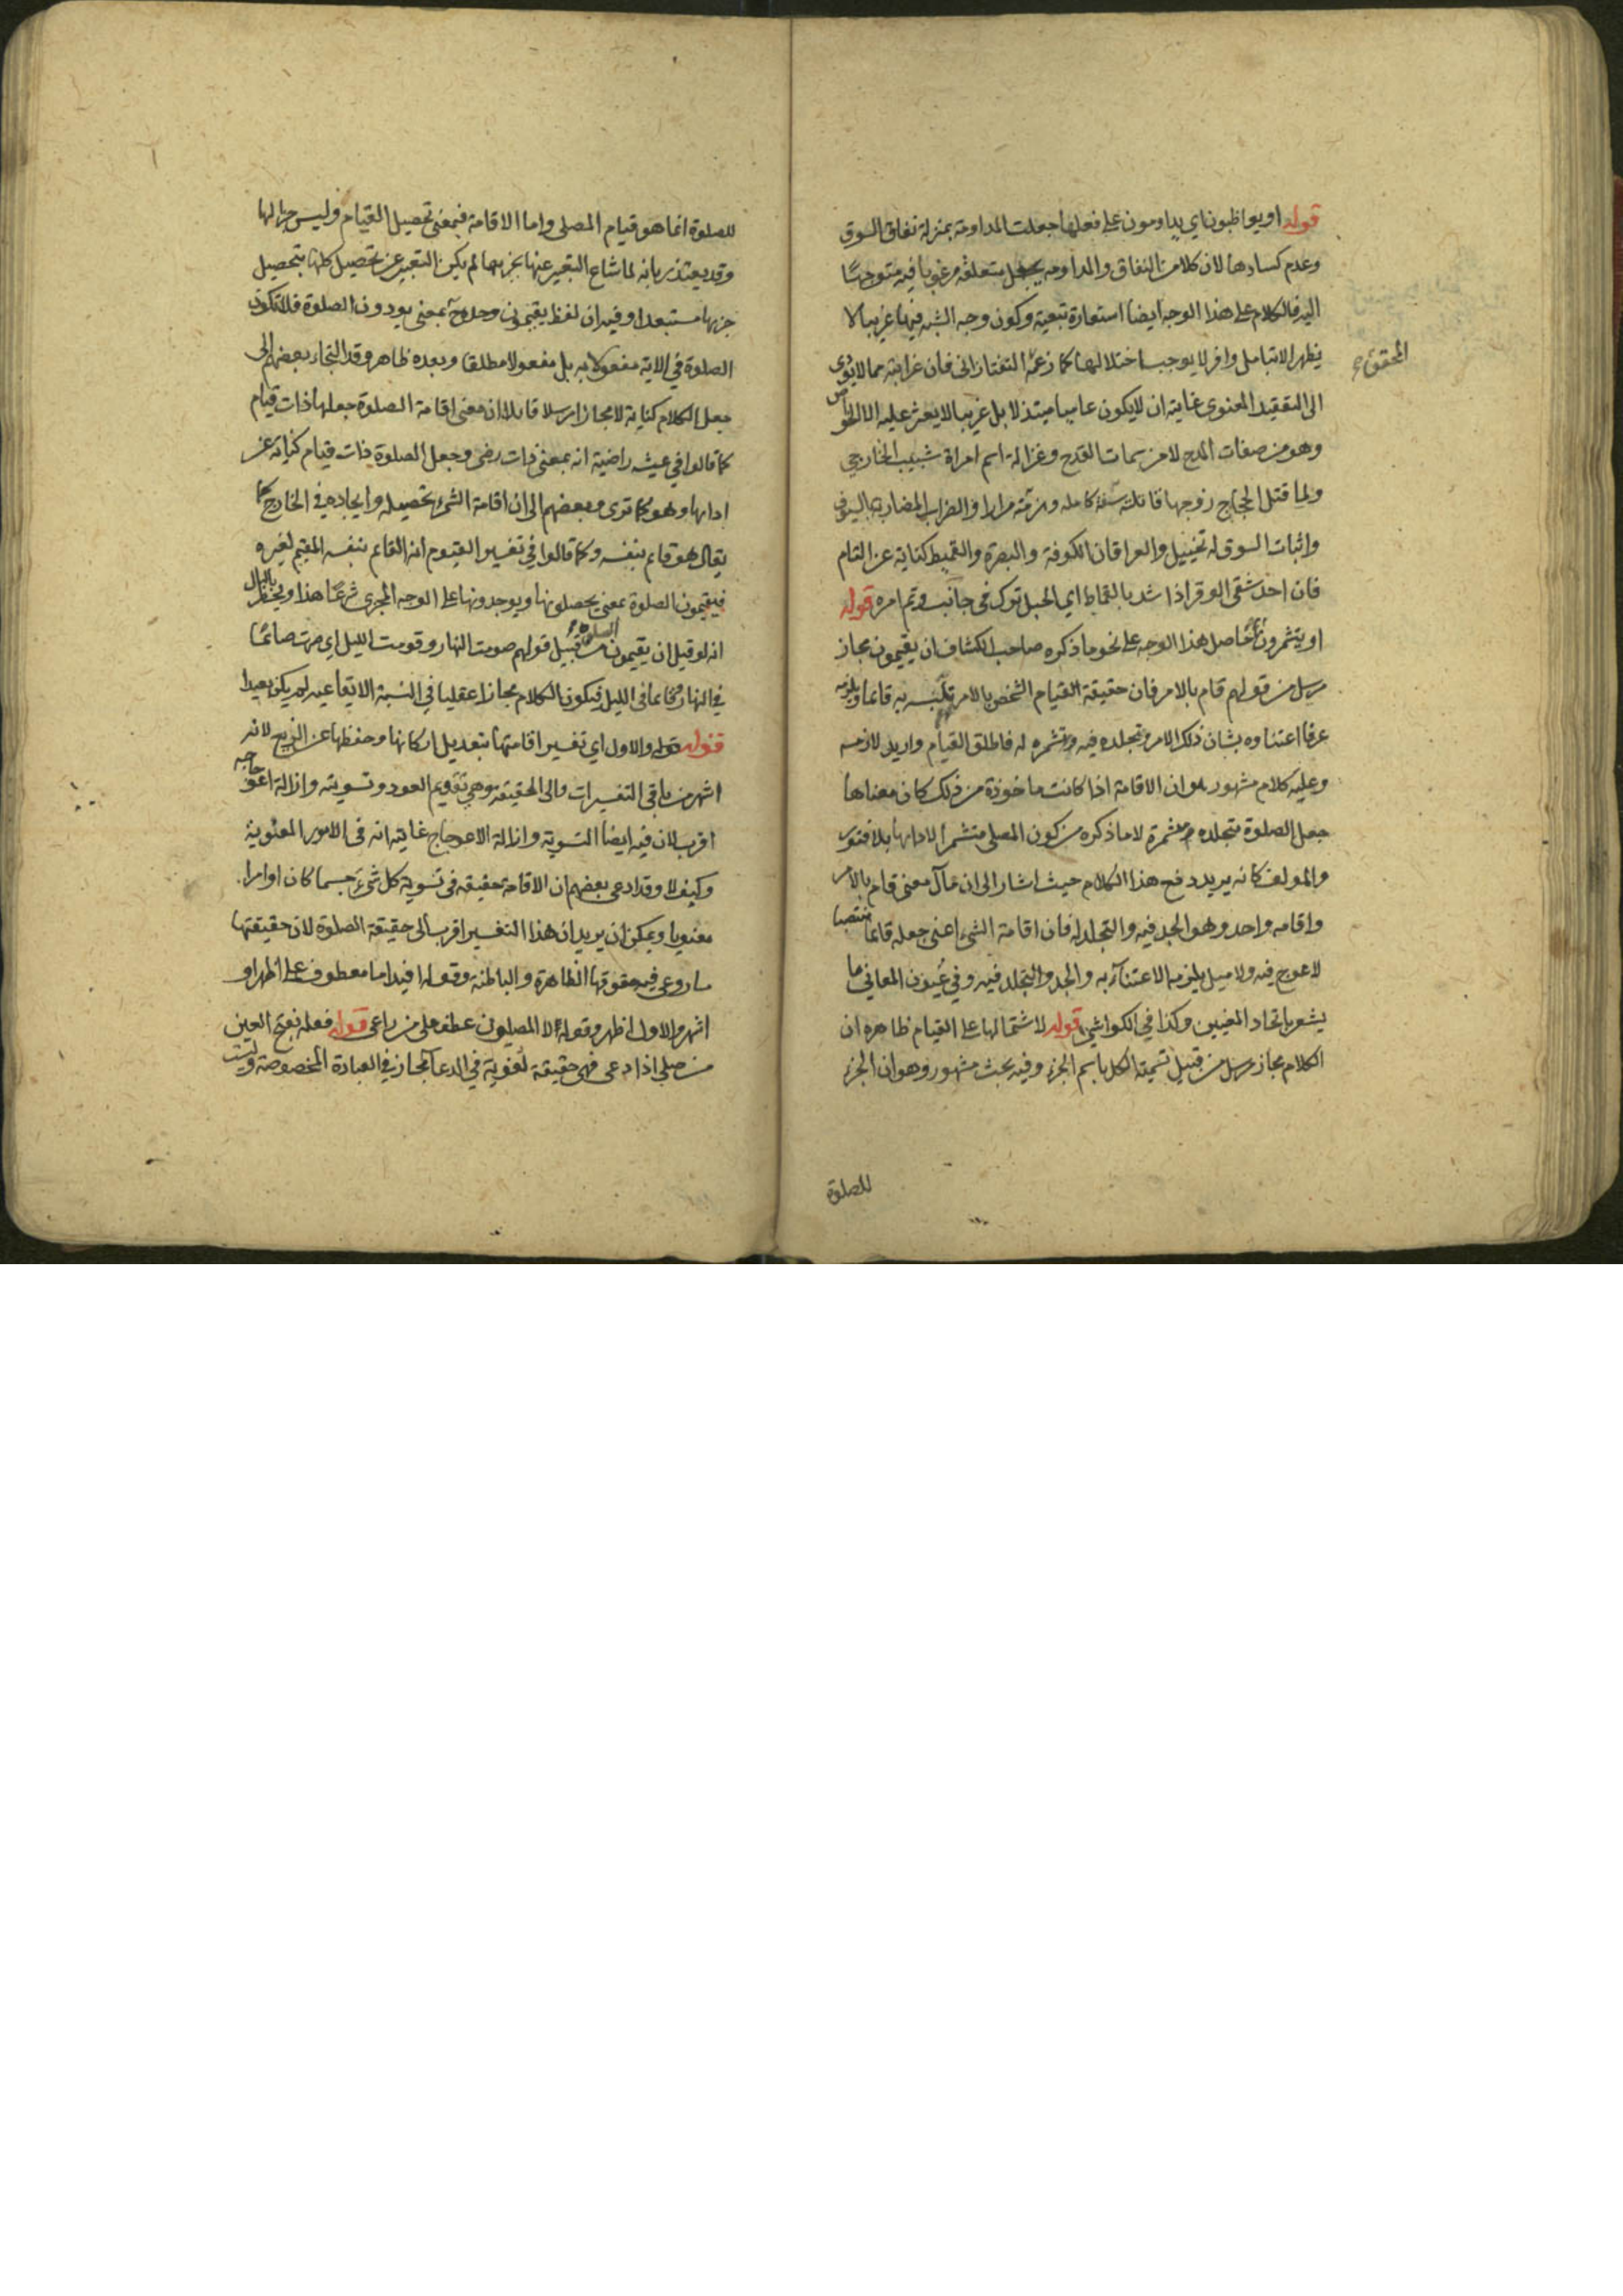 قوله او يواظبون اي يداومون على فعلها جعلت المداومة بمنزلة نفاق السوق
وعدم كسادها لان كلا من النفاق والمداومه يجعل متعلقه مرغوبا فيه متوجها
اليه فالكلام على هذا الوجه ايضا استعارة تبعية وكون وجه الشبه فيها غريبا لا
يظهر الا بتامل وافر لا يوجب اختلالها كما زعمه التفتازانى فان غرابته مما لا يؤدى
المحقق
الى التعقيد المعنوى غايته ان لا يكون عاميا مبتذلا بل غريبا لا يعثر عليه الا الخواص
وهو من صفات المدح لا من سمات القدح وغزالة اسم امراة شبيب الخارجي
ولما قتل الحجاج زوجها قاتلته سنة كامله وهزمته مرارا والضراب المضاربة بالسيوف
واثبات السوق له تخييل والعراقان الكوفة والبصرة والقميط كناية عن التام
فان احد شقى الوقر اذا شد بالقماط اي الحبل ترك في جانب وتم امره قوله
او يتشمرون حاصل هذا الوجه على نحو ما ذكره صاحب الكشاف ان يقيمون مجاز
مرسل من قولهم قام بالامر فان حقيقة القيام الشخص بالامر تلبسه به قائما ويلزمه
عرفا اعتناوه بشان ذلك الامر وتجلده فيه وتشمره له فاطلق القيام واريد لازمه
وعليه كلام مشهور هو ان الاقامة اذا كانت ماخوذة من ذلك كان معناها
جعل الصلوة متجلده متشمرة لا ما ذكره من كون المصلى متشمرا لادائها بلا فتور
والمولف كانه يريد دفع هذا الكلام حيث اشار الى ان مآل معنى قام بالامر
واقامه واحد وهو الجد فيه والتجلد له فان اقامة الشئ اعنى جعله قائما منتصبا
لا عوج فيه ولا ميل يلزمه الاعتناء به والجد والتجلد فيه وفي عيون المعاني ما
يشعر باتحاد المعنيين وكذا في الكواشي قوله لاشتمالها على القيام ظاهره ان
الكلام مجاز مرسل من قبيل تسمية الكل باسم الجزء وفيه بحث مشهور وهو ان الجزء
للصلوة
للصلوة انما هو قيام المصلى واما الاقامة فبمعنى تحصيل القيام وليس جزالها
وقد يعتذر بانه لما شاع التعبير عنها بجزيها لم يكن التعبير عن تحصيل كلها بتحصيل
جزيها مستبعدا وفيه ان لفظ يقيمون وحده بمعنى يودون الصلوة فلا تكون
الصلوة في الاية مفعولا به بل مفعولا مطلقا وبعده ظاهر وقد التجاء بعضهم الى
جعل الكلام كناية لا مجازا مرسلا قائلا ان معنى اقامة الصلوة جعلها ذات قيام
كما قالوا في عيشه راضية انه بمعنى ذات رضى وجعل الصلوة ذات قيام كناية عن
ادايها وهو كما ترى وبعضهم الى ان اقامة الشئ تحصيله وايجاده في الخارج كما
يقال هو قائم بنفسه وكما قالوا في تفسير القيوم انه القائم بنفسه المقيم لغيره
فيقيمون الصلوة بمعنى يحصلونها ويوجدونها على الوجه المجرى شرعا هذا ويخطر بالبال
انه لو قيل ان يقيمون الصلوة من قبيل قولهم صومت النهار وقومت الليل اي صرت صائما
في النهار وقائما في الليل فيكون الكلام مجازا عقليا في النسبة الايقاعيه لم يكن بعيدا
قوله قوله والاول اي تفسير اقامتها بتعديل اركانها وحفظها عن الزيغ لانه
اشهر من باقى التفسيرات والى الحقيقة وهي تقويم العود وتسويته وازالة اعوجاجه
اقرب لان فيه ايضا التسوية وازالة الاعوجاج غايته انه في الامور المعنوية
وكيف لا وقد ادعى بعضهم ان الاقامة حقيقه فى تسوية كل شئ جسما كان او امرا
معنويا ويمكن ان يريد ان هذا التفسير اقرب الى حقيقة الصلوة لان حقيقتها
ما روعى فيه حقوقها الظاهرة والباطنة وقوله افيد اما معطوف على اظهر او
اشهر والاول اظهر وقوله الا المصلون عطف على من راعى قوله فعله بفتح العين
من صلى اذا دعى فهي حقيقة لغوية في الدعا مجاز في العبادة المخصوصة وليست